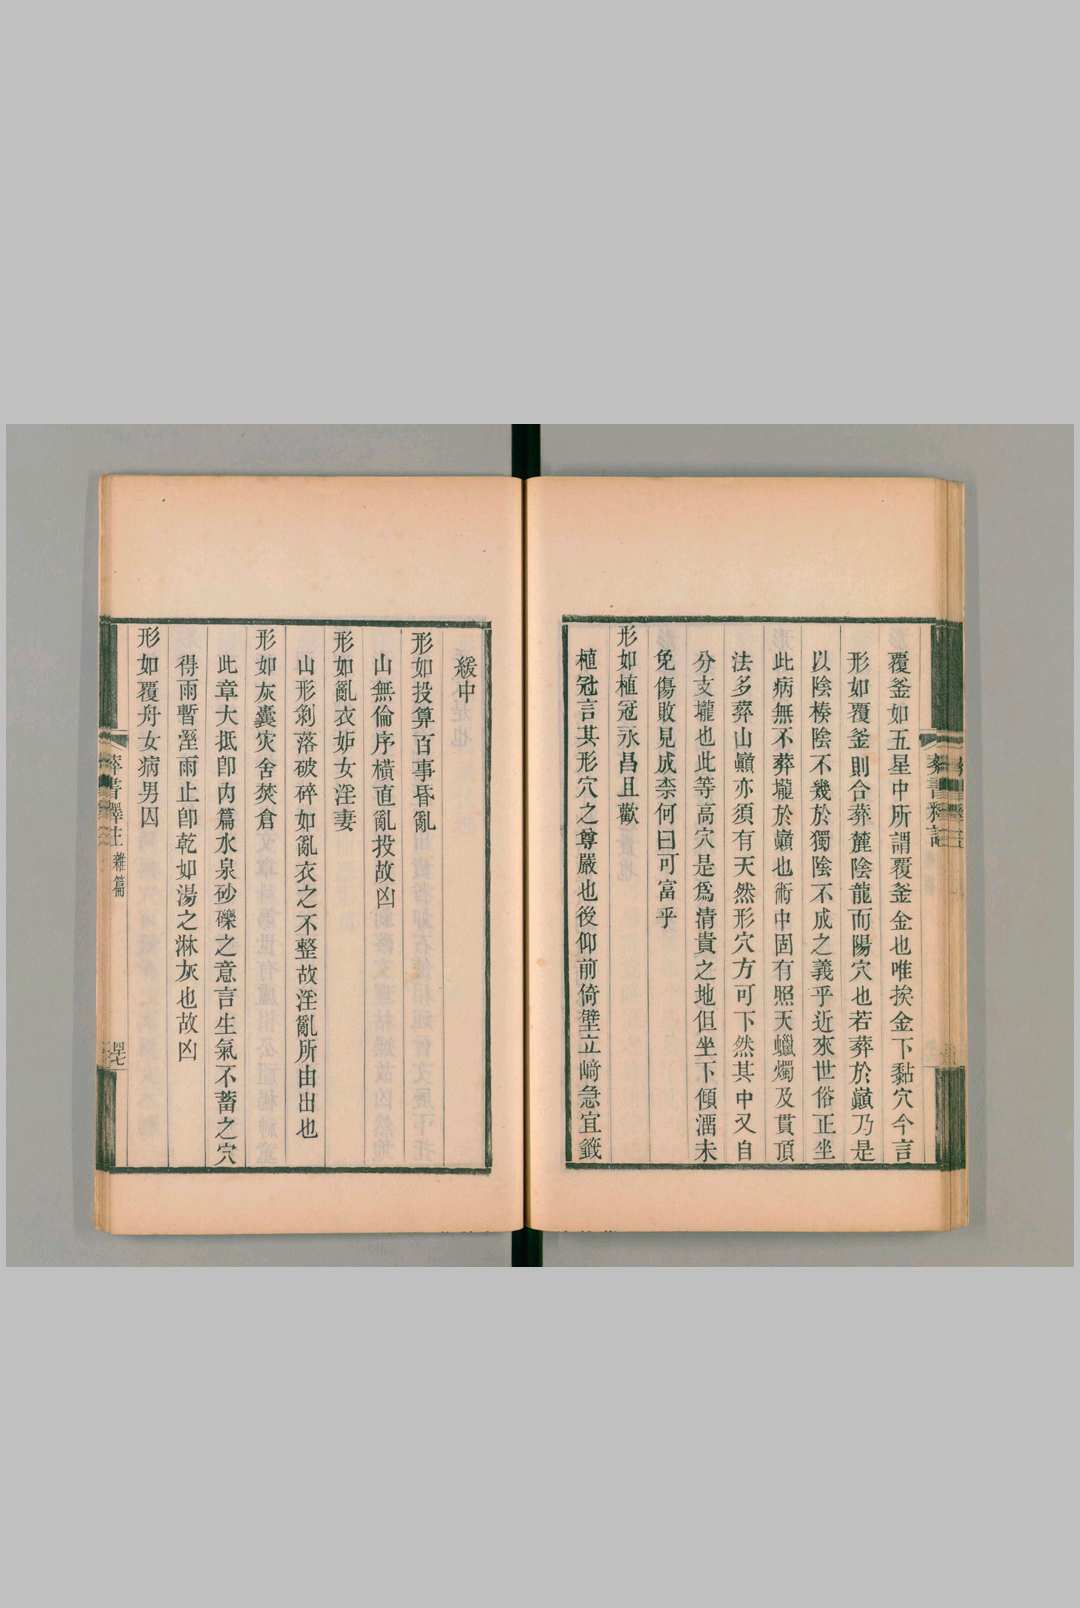 覆釜如五星中所謂覆釜金也唯挨金下黏穴今言
形如覆釜則合葬麓陰龍而陽穴也若葬於巔乃是
以陰楱陰不幾於獨陰不成之義乎近來世俗正坐
此病無不葬壠於巔也術中固有照天蠟燭及貫頂
法多葬山巔亦須有天然形穴方可下然其中又自
分支壠也此等高穴是爲清貴之地但坐下傾瀉未
免傷敗見成柰何曰可富乎
形如植冠永昌且歡
植冠言其形穴之尊嚴也後仰前倚壁立崎急宜籤
緩中
形如投算百事昏亂
山無倫序橫直亂投故凶
形如亂衣妒女淫妻
山形剝落破碎如亂衣之不整故淫亂所由出也
形如灰囊灾舍焚倉
此章大抵卽內篇水泉砂礫之意言生氣不蓄之穴
得雨暫溼雨止卽乾如湯之淋灰也故凶
形如覆舟女病男囚
葬書釋注 雜篇